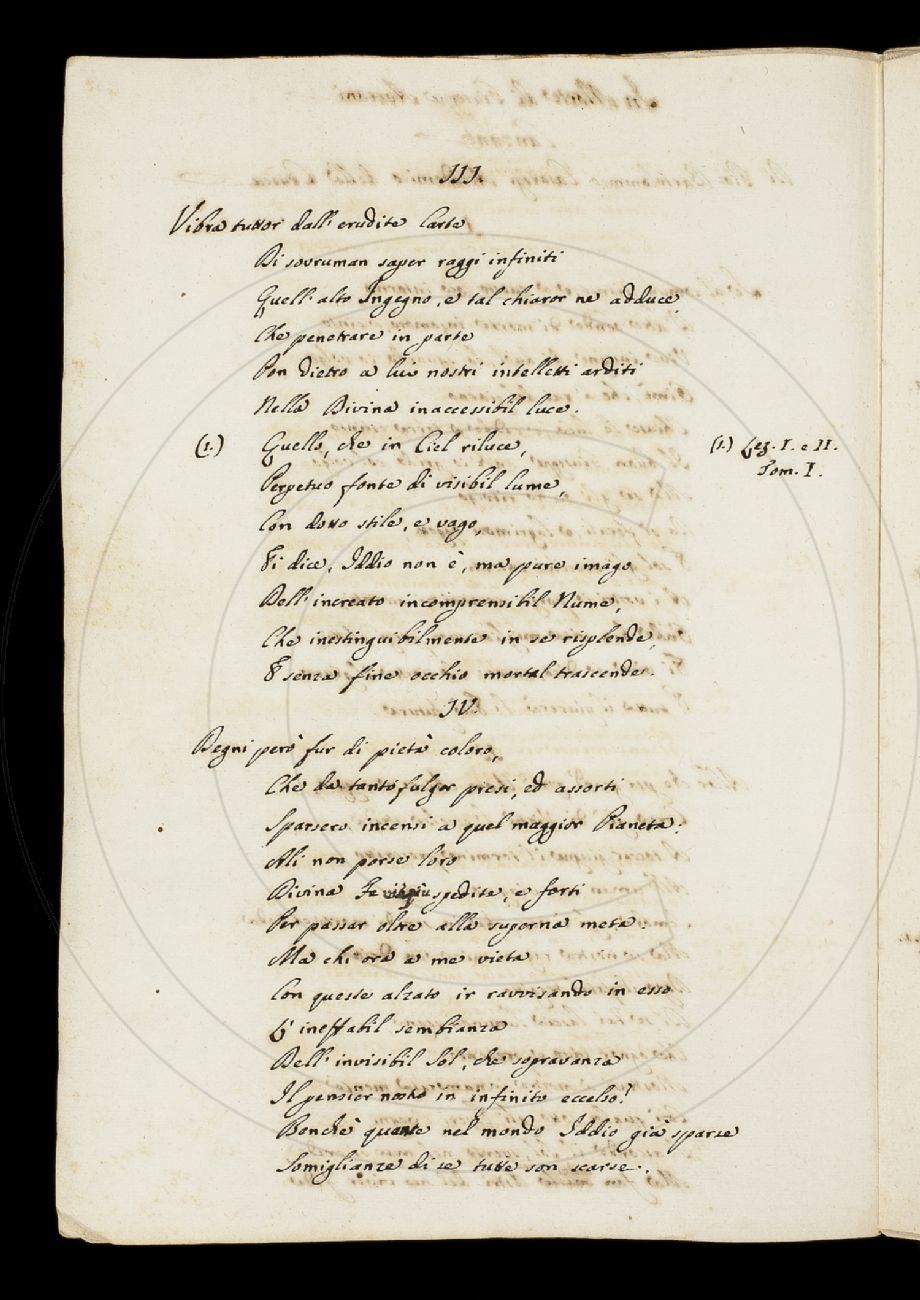 III.
Vibra tuttor dall' erudite Carte
Di sovruman saper raggi infiniti
Quell' alto Ingegno, e tal chiaror ne adduce,
Che penetrare in parte
Pon dietro a lui nostri intelletti arditi
Nella Divina inaccessibil luce.
(1.) Quello, che in Ciel riluce, (1.) Lez. I. e II.
Tom. I.
Perpetuo fonte di visibil lume,
Con dotto stile, e vago,
Ei dice, Iddio non è, ma pure imago
Dell' increato incomprensibil Nume,
Che inestinguibilmente in se risplende,
E senza fine occhio mortal trascende.
IV.
Degni però fur di pietà coloro,
Che da tanto fulgor presi, ed assorti
Sparsero incensi a quel maggior Pianeta:
Ali non porse loro
Divina Fe viepiù spedite, e forti
Per passar oltre alla superna meta.
Ma chi ora a me vieta
Con queste alzato ir ravvisando in esso
L' ineffabil sembianza
Dell' invisibil Sol, che sopravanza
Il pensier nostro in infinito eccelso!
Benchè quante nel mondo Iddio già sparse
Somiglianze di se tutte son scarse.